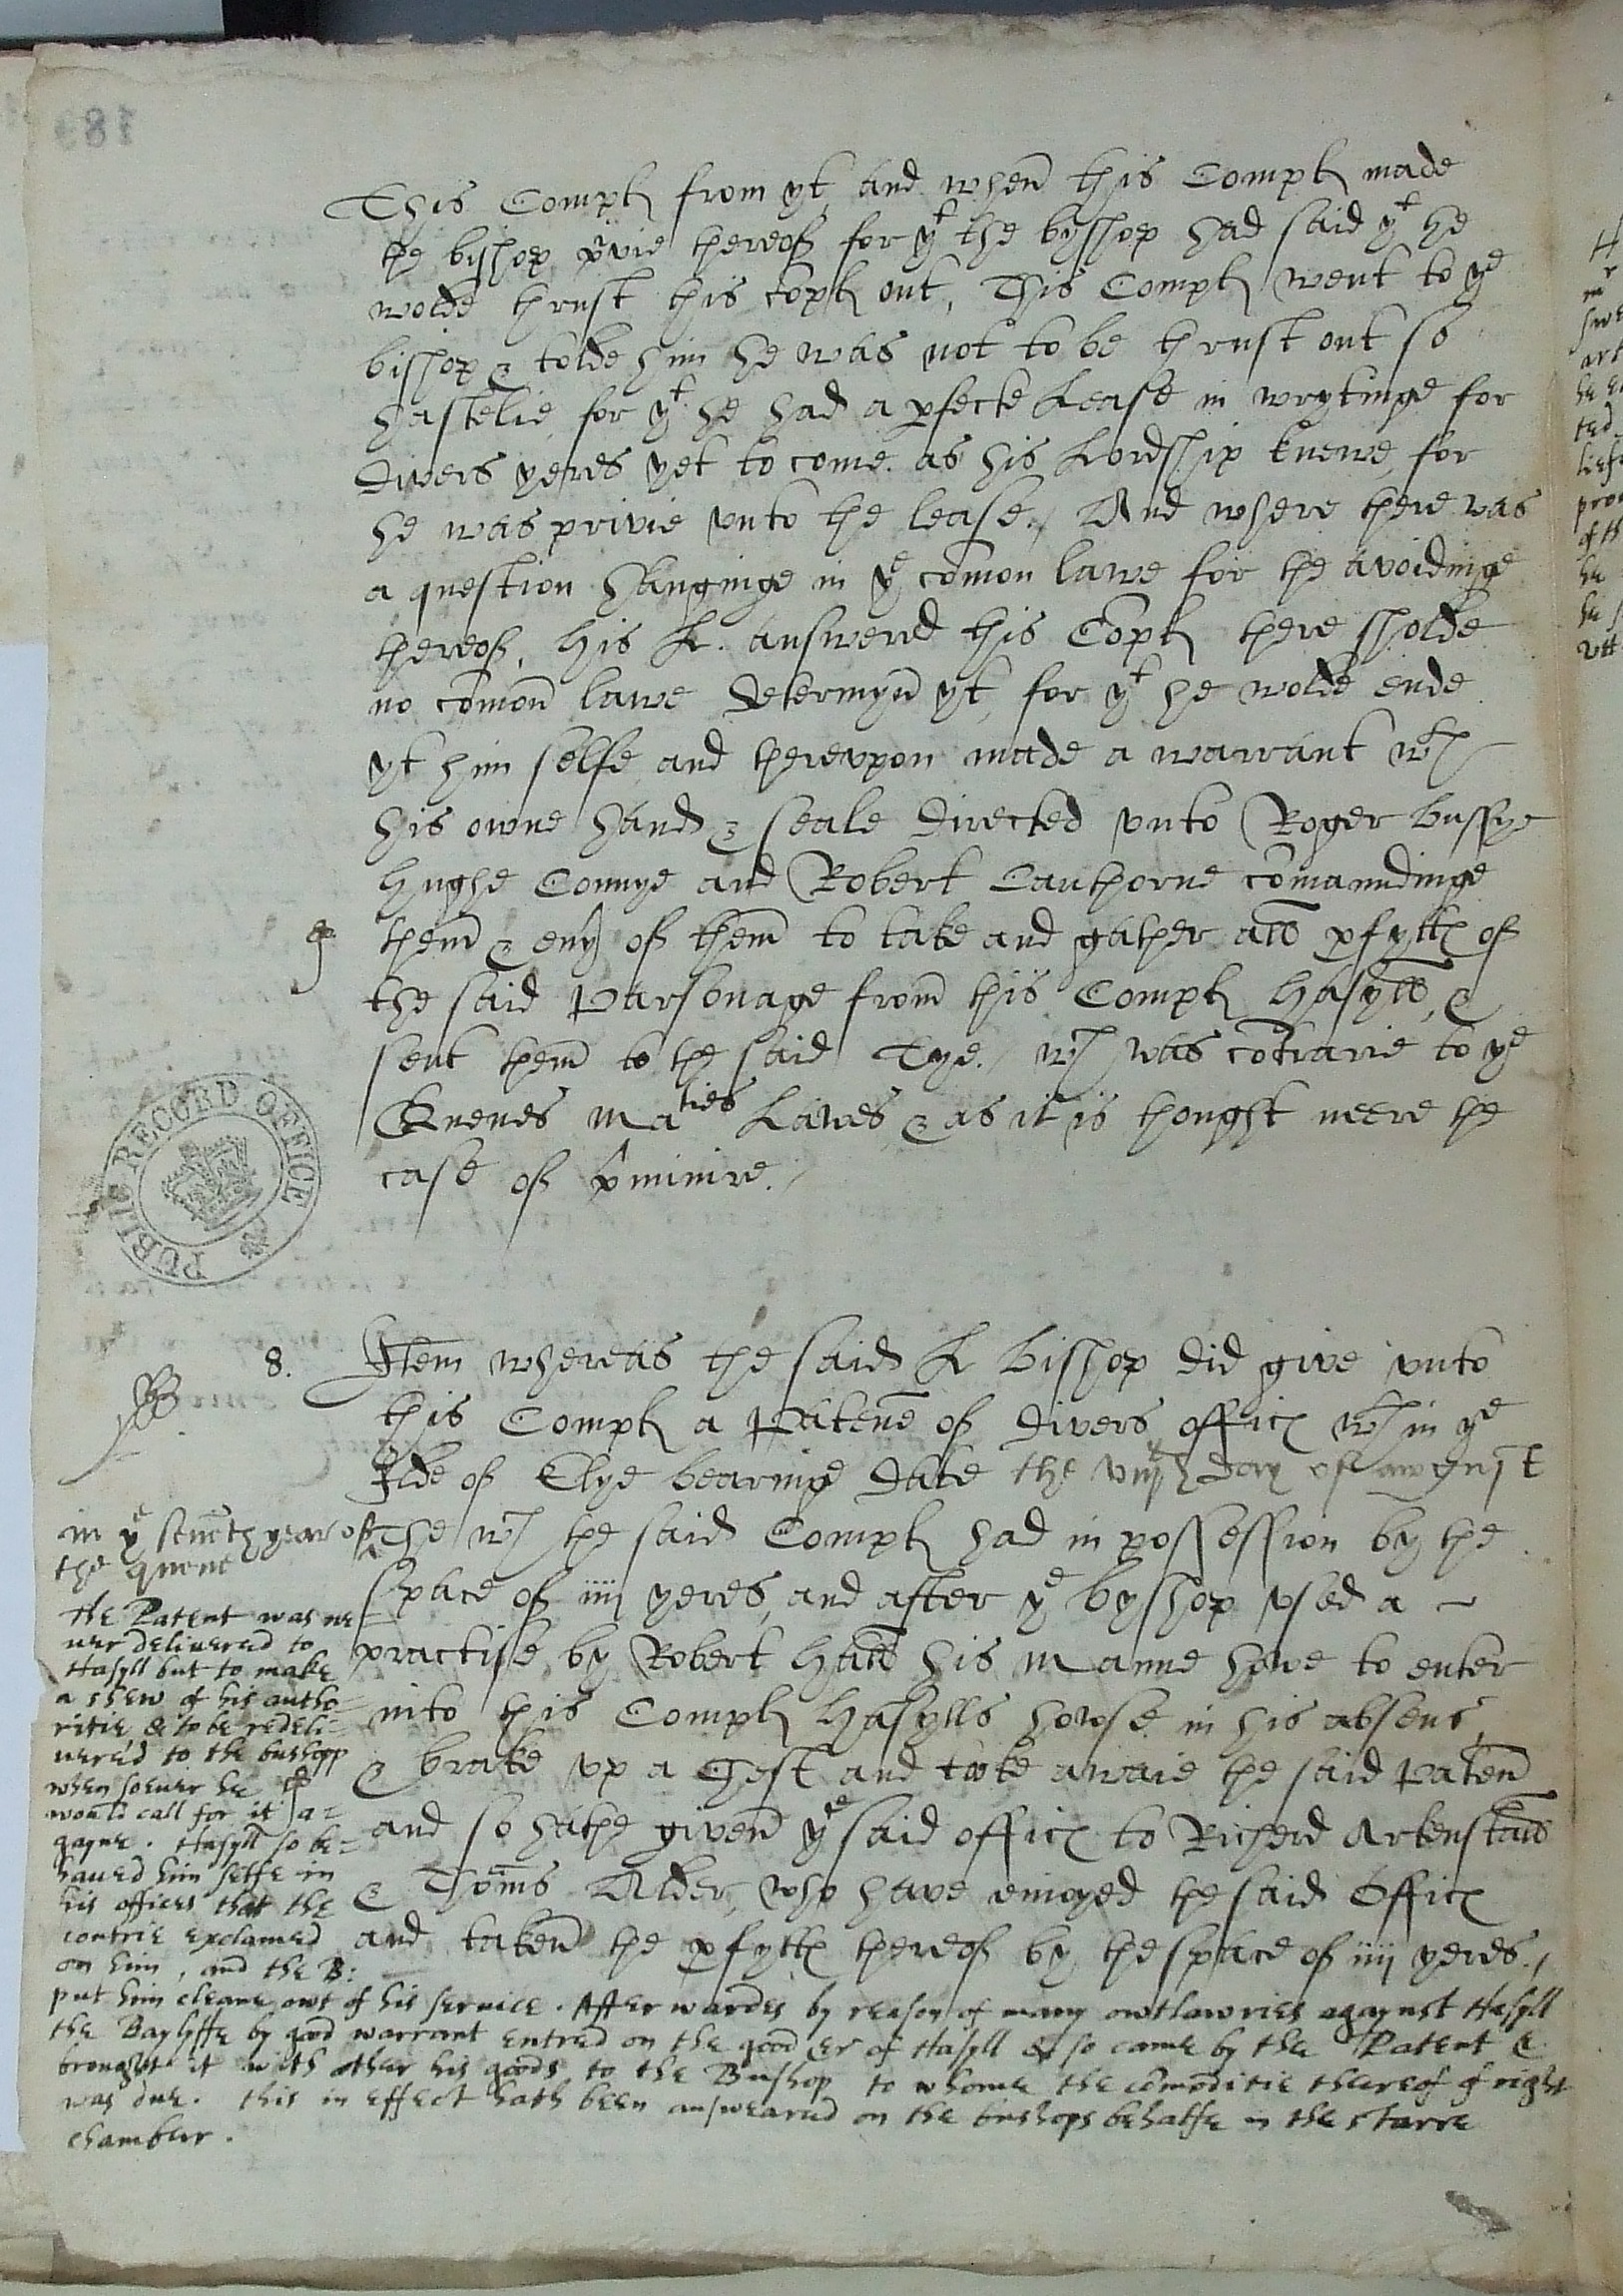 This Complt from yt, and when this Complt made
the bishop pryvie thereof for yt the byshop had said yt he
wolde thrust this coplt out, This Complt went to ye
bishop & tolde him he was not to be thrust out so
hastelie, for yt he had a pfecte Lease in wrytinge for
divers yeres yet to come. as his Lordship knewe, for
he was privie vnto the lease. And where there was
a question hanginge in ye comon lawe for the avoidinge
thereof, his L. answered this Coplt there sholde
no comon lawe determyn yt, for yt he wolde ende
yt him selfe and therevpon made a warrant wth
his owne hand & seale directed vnto Roger bussye
hughe Connye and Robert Cauthorne comaundinge
them & eny of them to take and gather all pfytts of
the said Parsonage from this Complt hasyll, &
sent them to the said Tye. wch was contrarie to ye
Quenes Maties Lawes, & as it is thought neere the
case of pminire.
PUBLIC RECORD OFFICE
8. Item whereas the said L bishop did give vnto
this Complt a Patene of divers offices wthin ye
Ilde of Elye bearinge date the viijth day of awgust
in ye senēth year of
the quene
The wch the said Complt had in possession by the
space of iiij yeres, and after ye byshop vsed a
practise by Robert hall his manne howe to enter
into this Complt hasylls howse in his absens,
& brake vp a Chest and toke awaie the said Paten
and so hathe given ye said offices to Richerd Arkenstall
& Thoms Alder, who have enioyed the said Offices
and taken the pfytts thereof by the space of iiij yeres.
the Patent was ne=
uer deliuered to
Hasyll but to make
a shew of his autho=
ritie & to be redeli=
uered to the bushopp
when soeuer he
would call for it a=
gayne. Hasyll so be=
haued him selfe in
his offices that the
contrie exclamed
on him, and the B:
put him cleane owt of his seruice. Afterwardes by reason of many owtlawries agaynst Hasyll
the Baylyffe by good warrant entred on the good er of Hasyll & so came by the Patent &
brought it with other his goods to the Bushop to whome the comoditie thereof of right
was due. this in effect hath been answeared on the bushops behalfe in the starre
chamber.